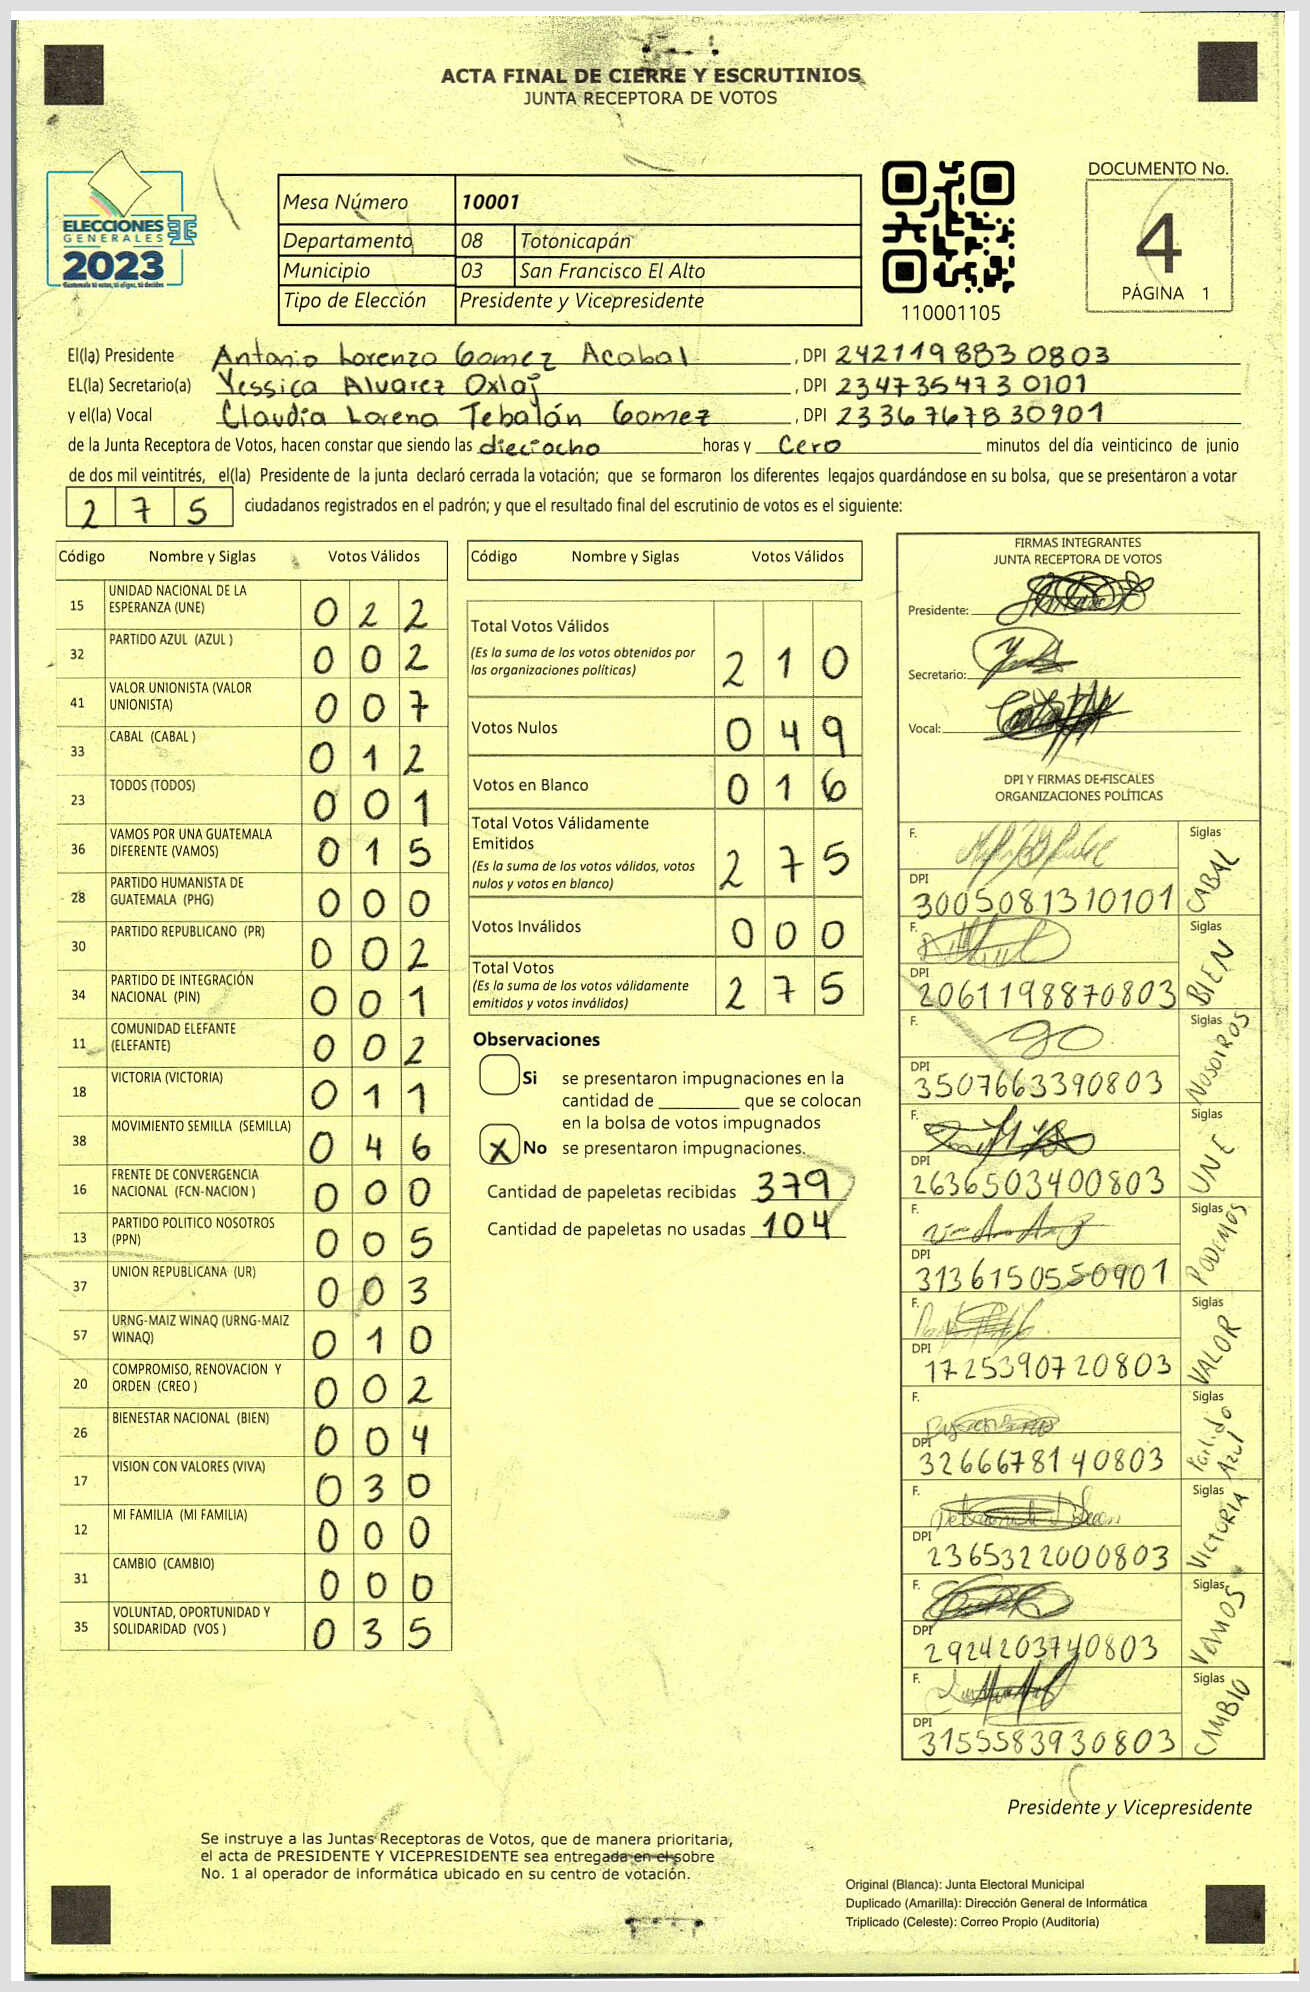 ACTA FINAL DE CIERRE Y ESCRUTINIOS
JUNTA RECEPTORA DE VOTOS
ELECCIONES
GENERALES
2023
Guatemala tú votas, tú eliges, tú decides
Mesa Número 10001
Departamento 08 Totonicapán
Municipio 03 San Francisco El Alto
Tipo de Elección Presidente y Vicepresidente
110001105
DOCUMENTO No.
4
PÁGINA 1
El(la) Presidente Antonio Lorenzo Gomez Acabal, DPI 2421198830803
EL(la) Secretario(a) Yessica Alvarez Oxlaj, DPI 2347354730101
y el(la) Vocal Claudia Lorena Tebalán Gomez, DPI 2336767830901
de la Junta Receptora de Votos, hacen constar que siendo las dieciocho horas y Cero minutos del día veinticinco de junio
de dos mil veintitrés, el(la) Presidente de la junta declaró cerrada la votación; que se formaron los diferentes legajos quardándose en su bolsa, que se presentaron a votar
275 ciudadanos registrados en el padrón; y que el resultado final del escrutinio de votos es el siguiente:
Código Nombre y Siglas Votos Válidos
15 UNIDAD NACIONAL DE LA ESPERANZA (UNE) 022
32 PARTIDO AZUL (AZUL ) 002
41 VALOR UNIONISTA (VALOR UNIONISTA) 007
33 CABAL (CABAL ) 012
23 TODOS (TODOS) 001
36 VAMOS POR UNA GUATEMALA DIFERENTE (VAMOS) 015
28 PARTIDO HUMANISTA DE GUATEMALA (PHG) 000
30 PARTIDO REPUBLICANO (PR) 002
34 PARTIDO DE INTEGRACIÓN NACIONAL (PIN) 001
11 COMUNIDAD ELEFANTE (ELEFANTE) 002
18 VICTORIA (VICTORIA) 011
38 MOVIMIENTO SEMILLA (SEMILLA) 046
16 FRENTE DE CONVERGENCIA NACIONAL (FCN-NACION ) 000
13 PARTIDO POLITICO NOSOTROS (PPN) 005
37 UNION REPUBLICANA (UR) 003
57 URNG-MAIZ WINAQ (URNG-MAIZ WINAQ) 010
20 COMPROMISO, RENOVACION Y ORDEN (CREO ) 002
26 BIENESTAR NACIONAL (BIEN) 004
17 VISION CON VALORES (VIVA) 030
12 MI FAMILIA (MI FAMILIA) 000
31 CAMBIO (CAMBIO) 000
35 VOLUNTAD, OPORTUNIDAD Y SOLIDARIDAD (VOS ) 035
Código Nombre y Siglas Votos Válidos
Total Votos Válidos 210
(Es la suma de los votos obtenidos por
las organizaciones políticas)
Votos Nulos 049
Votos en Blanco 016
Total Votos Válidamente
Emitidos 275
(Es la suma de los votos válidos, votos
nulos y votos en blanco)
Votos Inválidos 000
Total Votos 275
(Es la suma de los votos válidamente
emitidos y votos inválidos)
Observaciones
Si se presentaron impugnaciones en la
cantidad de ________ que se colocan
en la bolsa de votos impugnados
X No se presentaron impugnaciones.
Cantidad de papeletas recibidas 379
Cantidad de papeletas no usadas 104
FIRMAS INTEGRANTES
JUNTA RECEPTORA DE VOTOS
Presidente:
Secretario:
Vocal:
DPI Y FIRMAS DE FISCALES
ORGANIZACIONES POLÍTICAS
F. Siglas CABAL
DPI 3005081310101
F. Siglas BIEN
DPI 2061198870803
F. Siglas NOSOTROS
DPI 3507663390803
F. Siglas UNE
DPI 2636503400803
F. Siglas PODEMOS
DPI 3136150550901
F. Siglas VALOR
DPI 1725390720803
F. Siglas Partido Azul
DPI 3266678140803
F. Siglas VICTORIA
DPI 2365322000803
F. Siglas VAMOS
DPI 2924203740803
F. Siglas CAMBIO
DPI 3155583930803
Presidente y Vicepresidente
Se instruye a las Juntas Receptoras de Votos, que de manera prioritaria,
el acta de PRESIDENTE Y VICEPRESIDENTE sea entregada en el sobre
No. 1 al operador de informática ubicado en su centro de votación.
Original (Blanca): Junta Electoral Municipal
Duplicado (Amarilla): Dirección General de Informática
Triplicado (Celeste): Correo Propio (Auditoría)